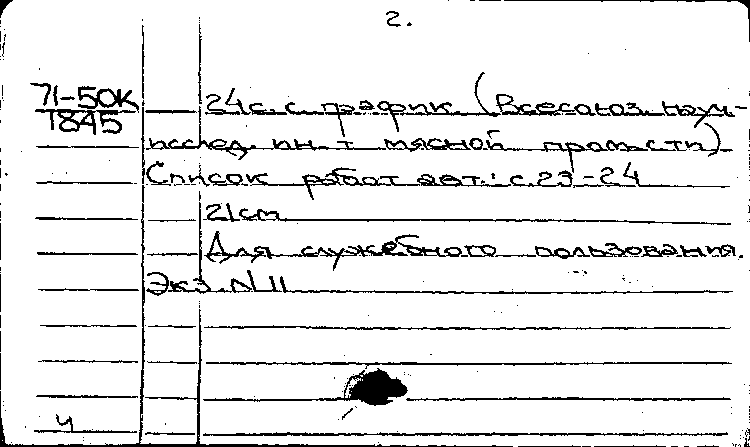 2.
71-50К
1845
24с. с график. (Всесоюз. науч.-
исслед. ин-т мясной пром-сти)
Список работ авт.: с.23-24
21см
Для служебного пользования.
Экз. N 11
ч